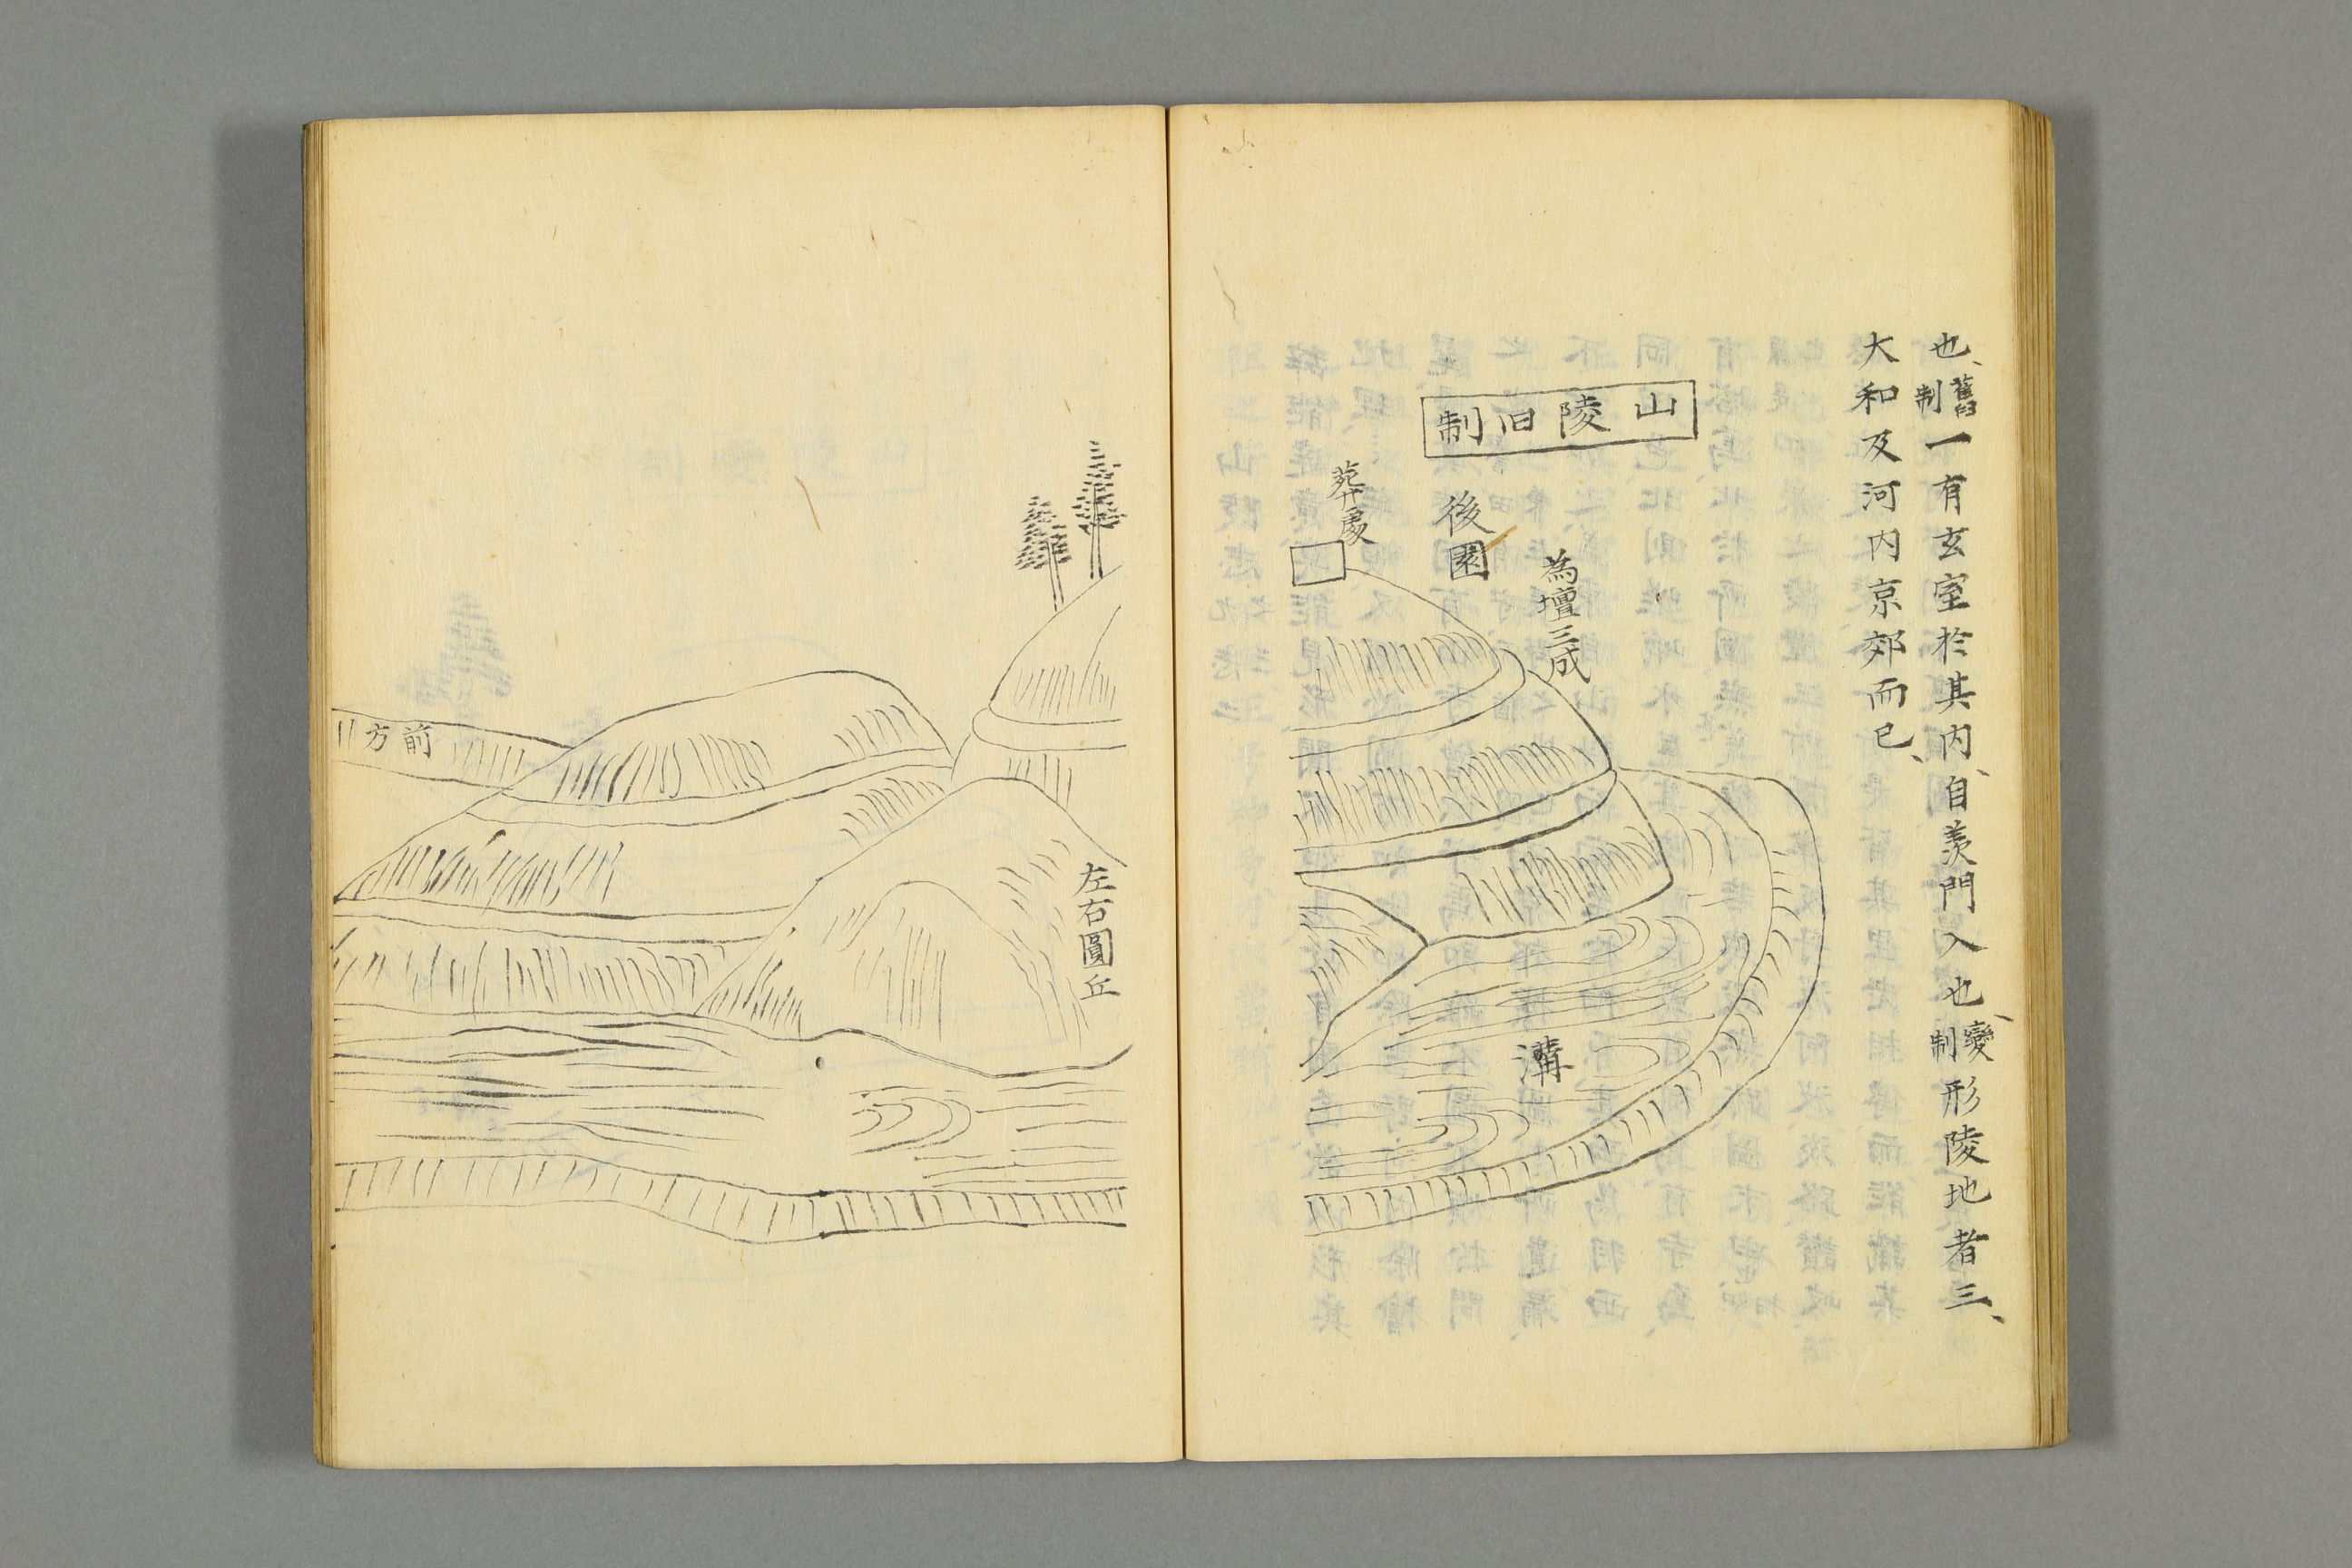 也、舊制一有玄室於其内、自羨門入也、變制形陵地者三、
大和及河内京郊而已、
山陵旧制
為壇三成
後圓
葬処
溝
左右圓丘
前方